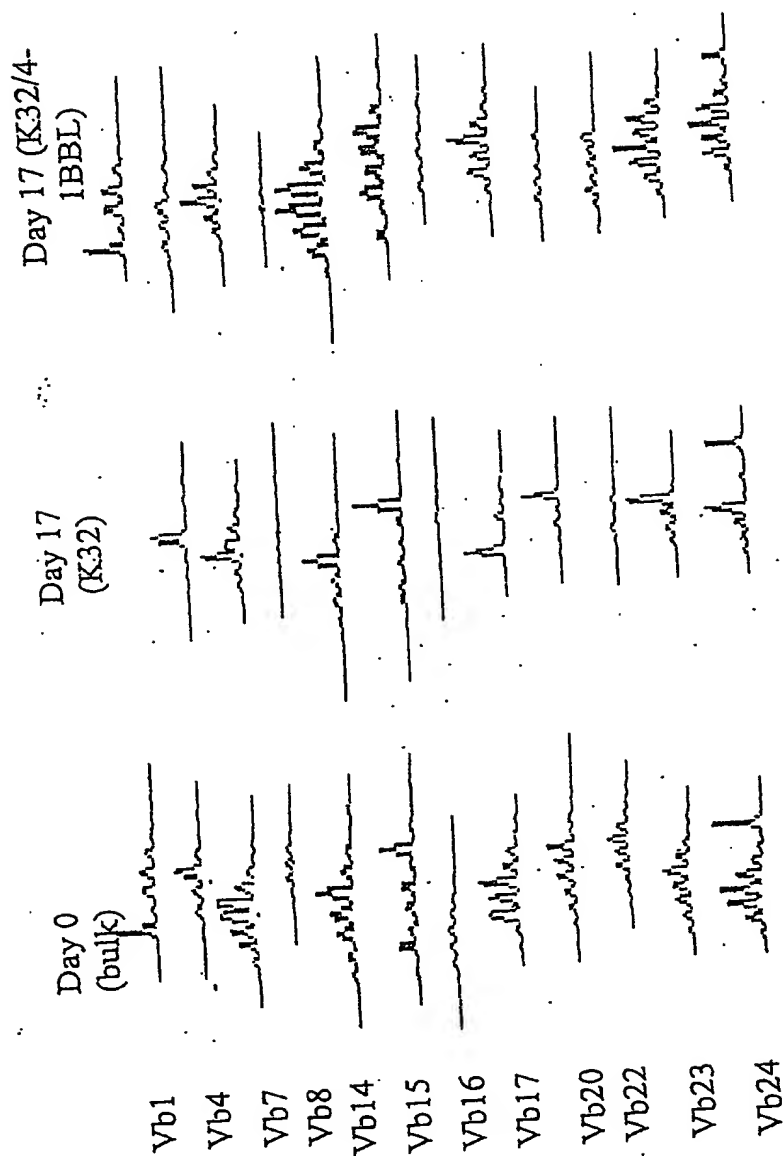 Day 0
(bulk)
Day 17
(K32)
Day 17 (K32/4-
1BBL)
Vb1
Vb4
Vb7
Vb8
Vb14
Vb15
Vb16
Vb17
Vb20
Vb22
Vb23
Vb24